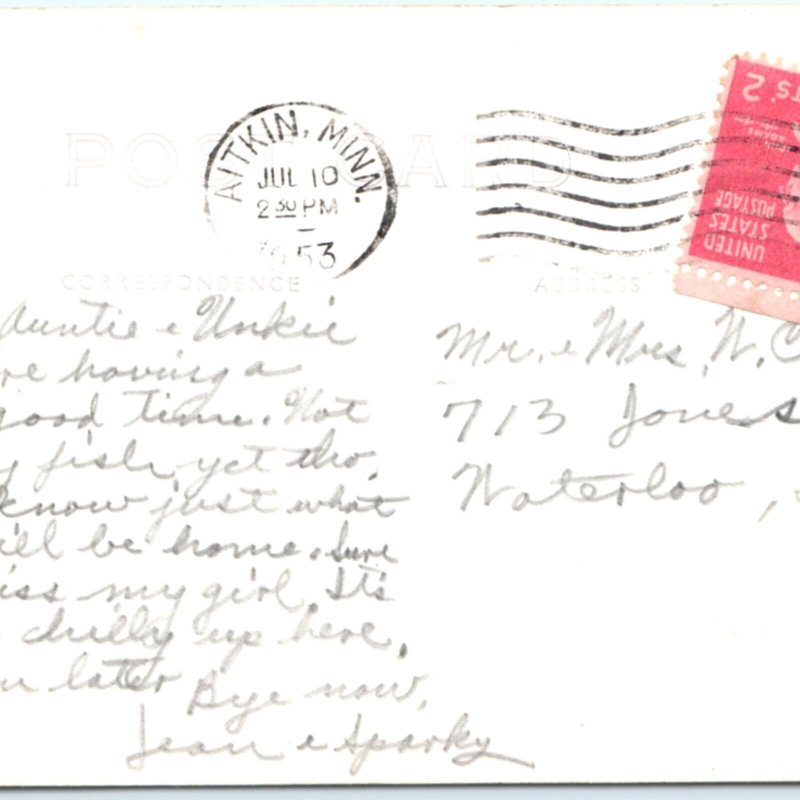 POST CARD
AITKIN, MINN.
JUL 10
2 30 PM
1953
2
ADAMS
UNITED
STATES
POSTAGE
CORRESPONDENCE
ADDRESS
Auntie & Unkie
re having a
good time. Not
y fish yet tho.
know just what
ill be home. Sure
iss my girl. It's
chilly up here.
u later Bye now,
Jean & Sparky
Mr. & Mrs. W. C
713 Jones
Waterloo,